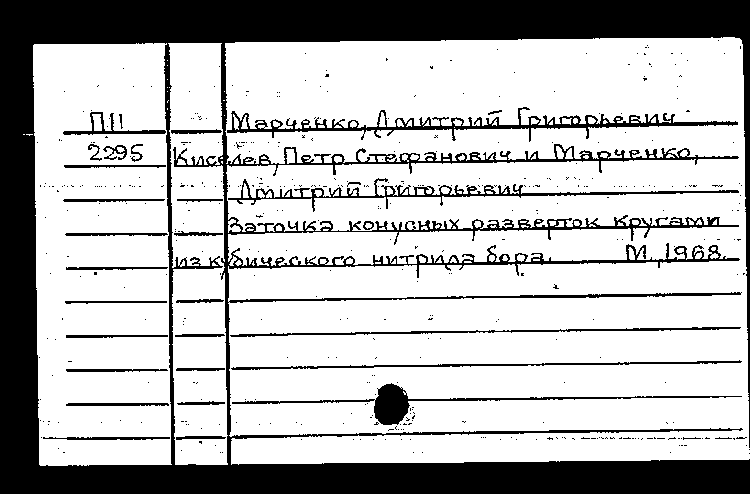 П11 Марченко, Дмитрий Григорьевич
2295 Киселев, Петр Стефанович и Марченко,
Дмитрий Григорьевич
Заточка конусных разверток кругами
из кубического нитрида бора. М., 1968.